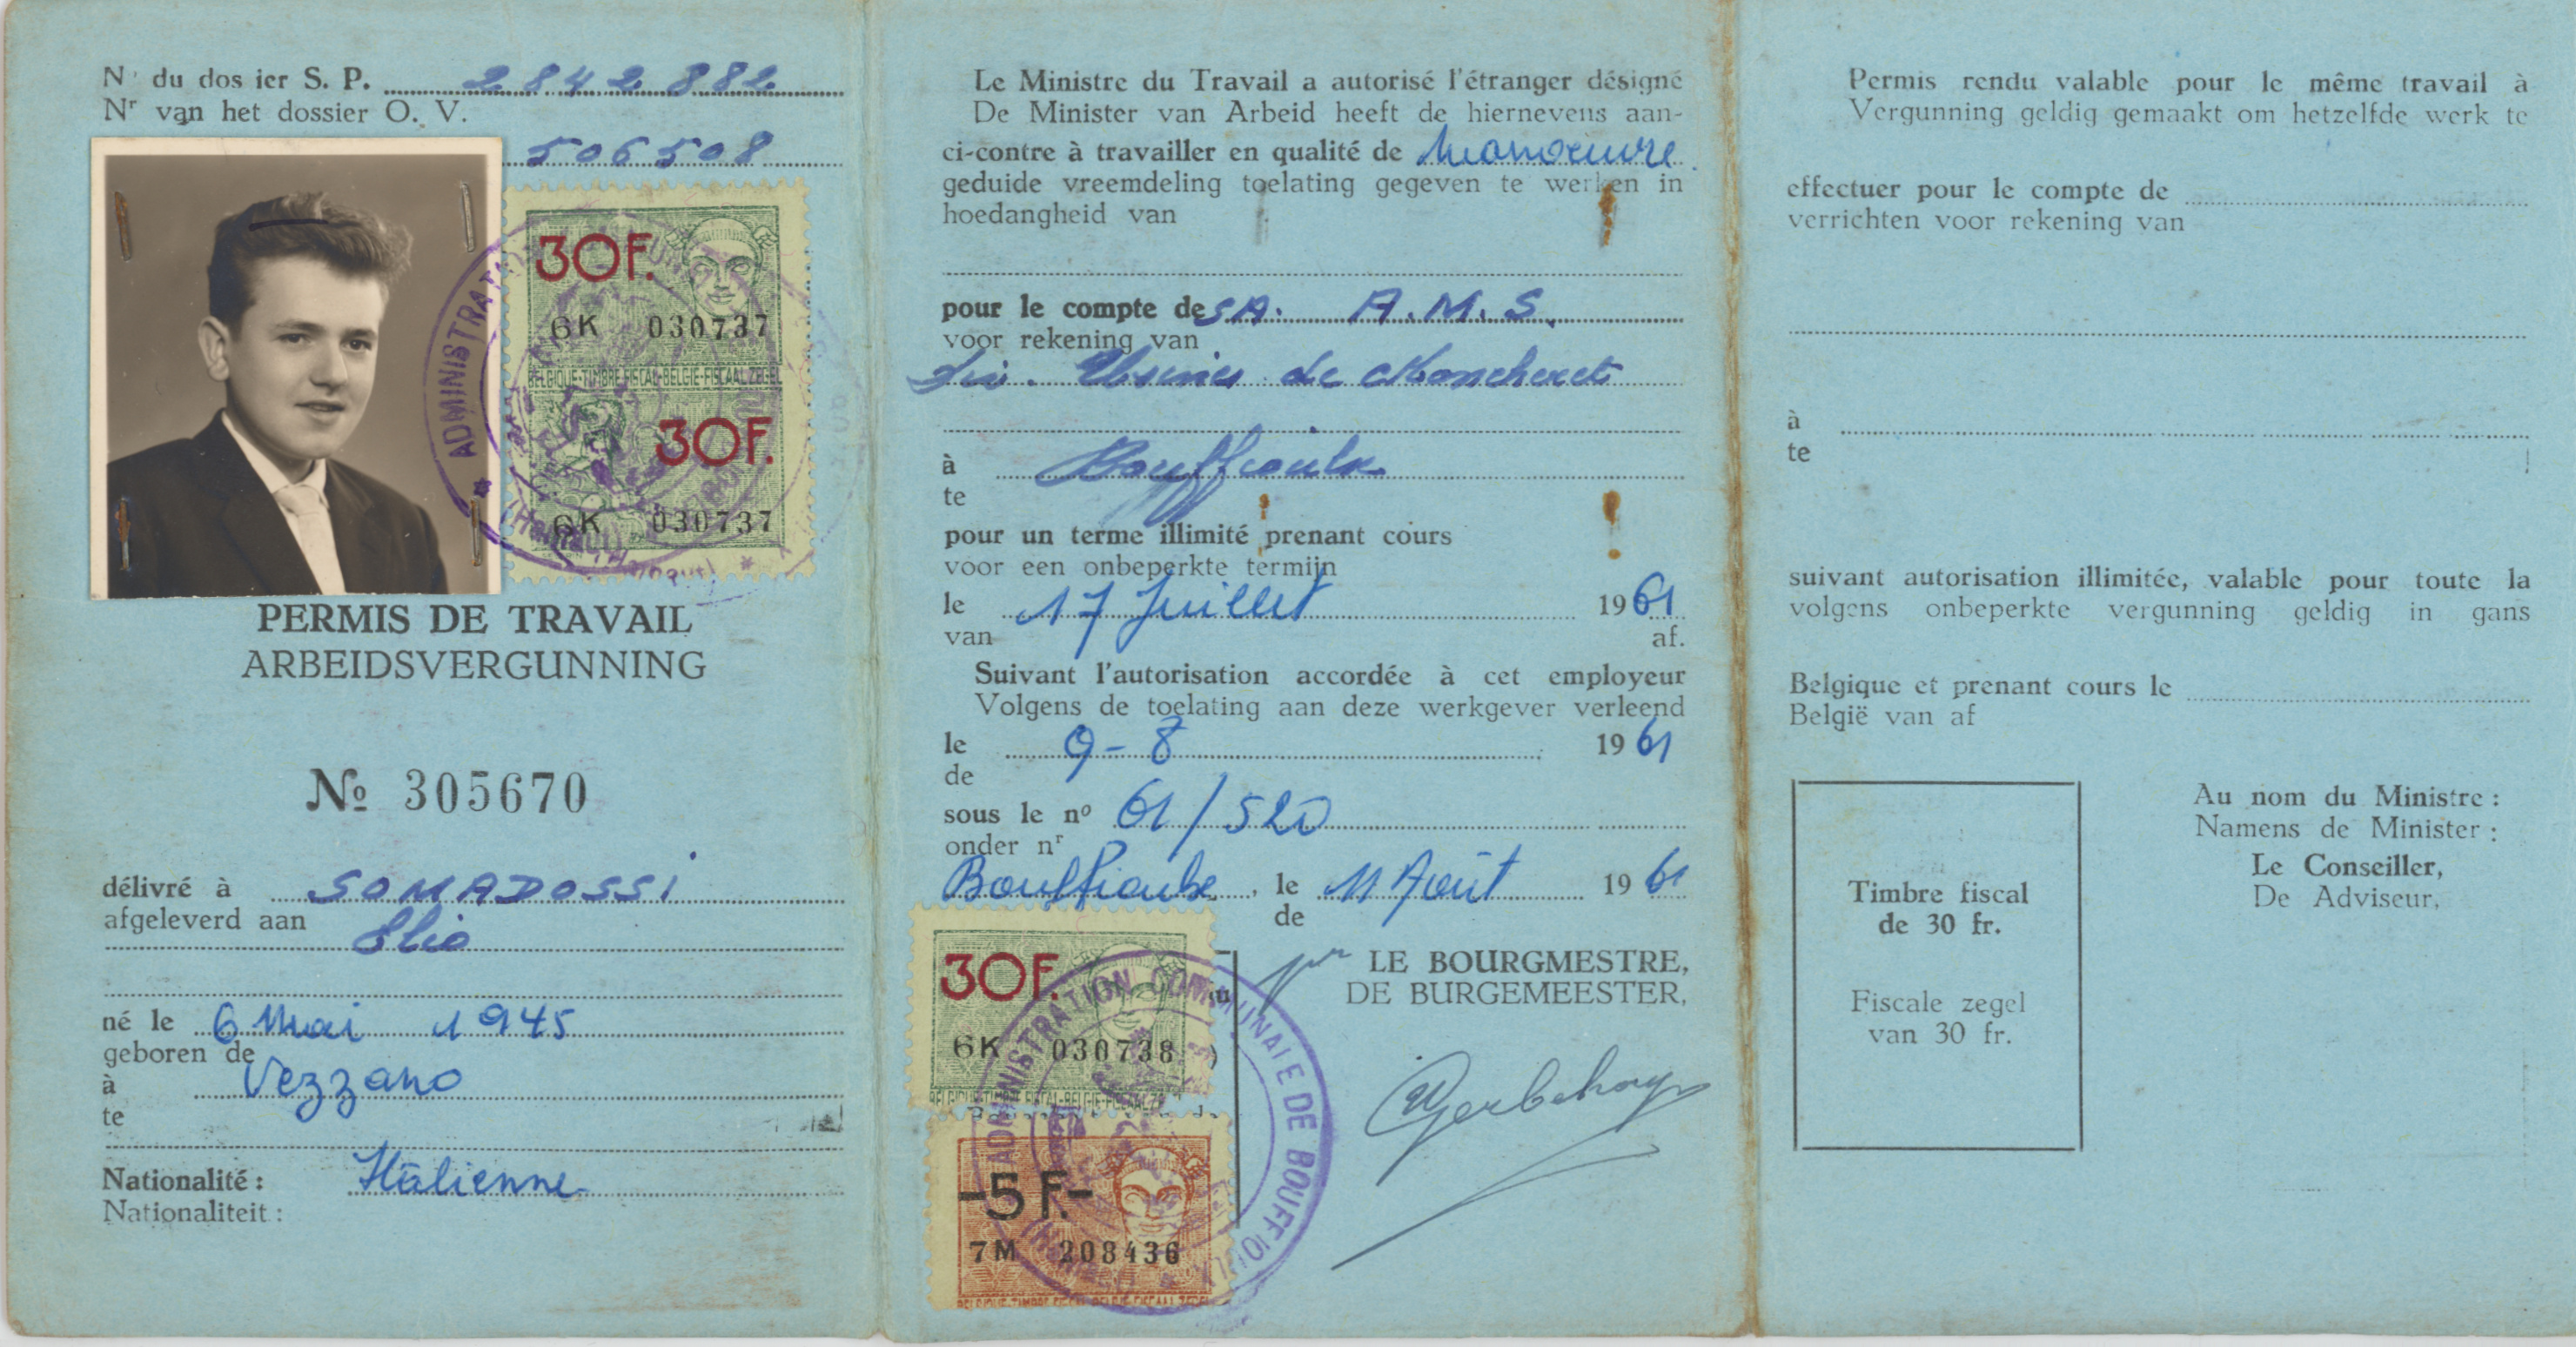 Nr du dossier S. P. 2842882
Nr van het dossier O. V.
506508
30F.
6K 030737
BELGIQUE-TIMBRE FISCAL-BELGIE-FISCAAL ZEGEL
30F.
6K 030737
PERMIS DE TRAVAIL
ARBEIDSVERGUNNING
No 305670
délivré à SOMADOSSI
afgeleverd aan Elio
né le 6 Mai 1945
geboren de
à Vezzano
te
Nationalité : Italienne
Nationaliteit :
Le Ministre du Travail a autorisé l'étranger désigné
De Minister van Arbeid heeft de hiernevens aan-
ci-contre à travailler en qualité de Manoeuvre
geduide vreemdeling toelating gegeven te werken in
hoedangheid van
pour le compte de SA. A.M.S.
voor rekening van
Usines de Moncheret
à Bouffioulx
te
pour un terme illimité prenant cours
voor een onbeperkte termijn
le 17 Juillet 1961
van af.
Suivant l'autorisation accordée à cet employeur
Volgens de toelating aan deze werkgever verleend
le 9-8 1961
de
sous le no 61/520
onder nr
Bouffioulx, le 11 Août 1961
de
pr LE BOURGMESTRE,
DE BURGEMEESTER,
30F.
6K 030738
BELGIQUE-TIMBRE FISCAL-BELGIE-FISCAAL
-5F.-
7M 208436
BELGIQUE-TIMBRE FISCAL-BELGIE-FISCAAL ZEGEL
ADMINISTRATION COMMUNALE DE BOUFFIOULX
(Hainaut)
Permis rendu valable pour le même travail à
Vergunning geldig gemaakt om hetzelfde werk te
effectuer pour le compte de
verrichten voor rekening van
à
te
suivant autorisation illimitée, valable pour toute la
volgens onbeperkte vergunning geldig in gans
Belgique et prenant cours le
België van af
Timbre fiscal
de 30 fr.
Fiscale zegel
van 30 fr.
Au nom du Ministre :
Namens de Minister :
Le Conseiller,
De Adviseur,